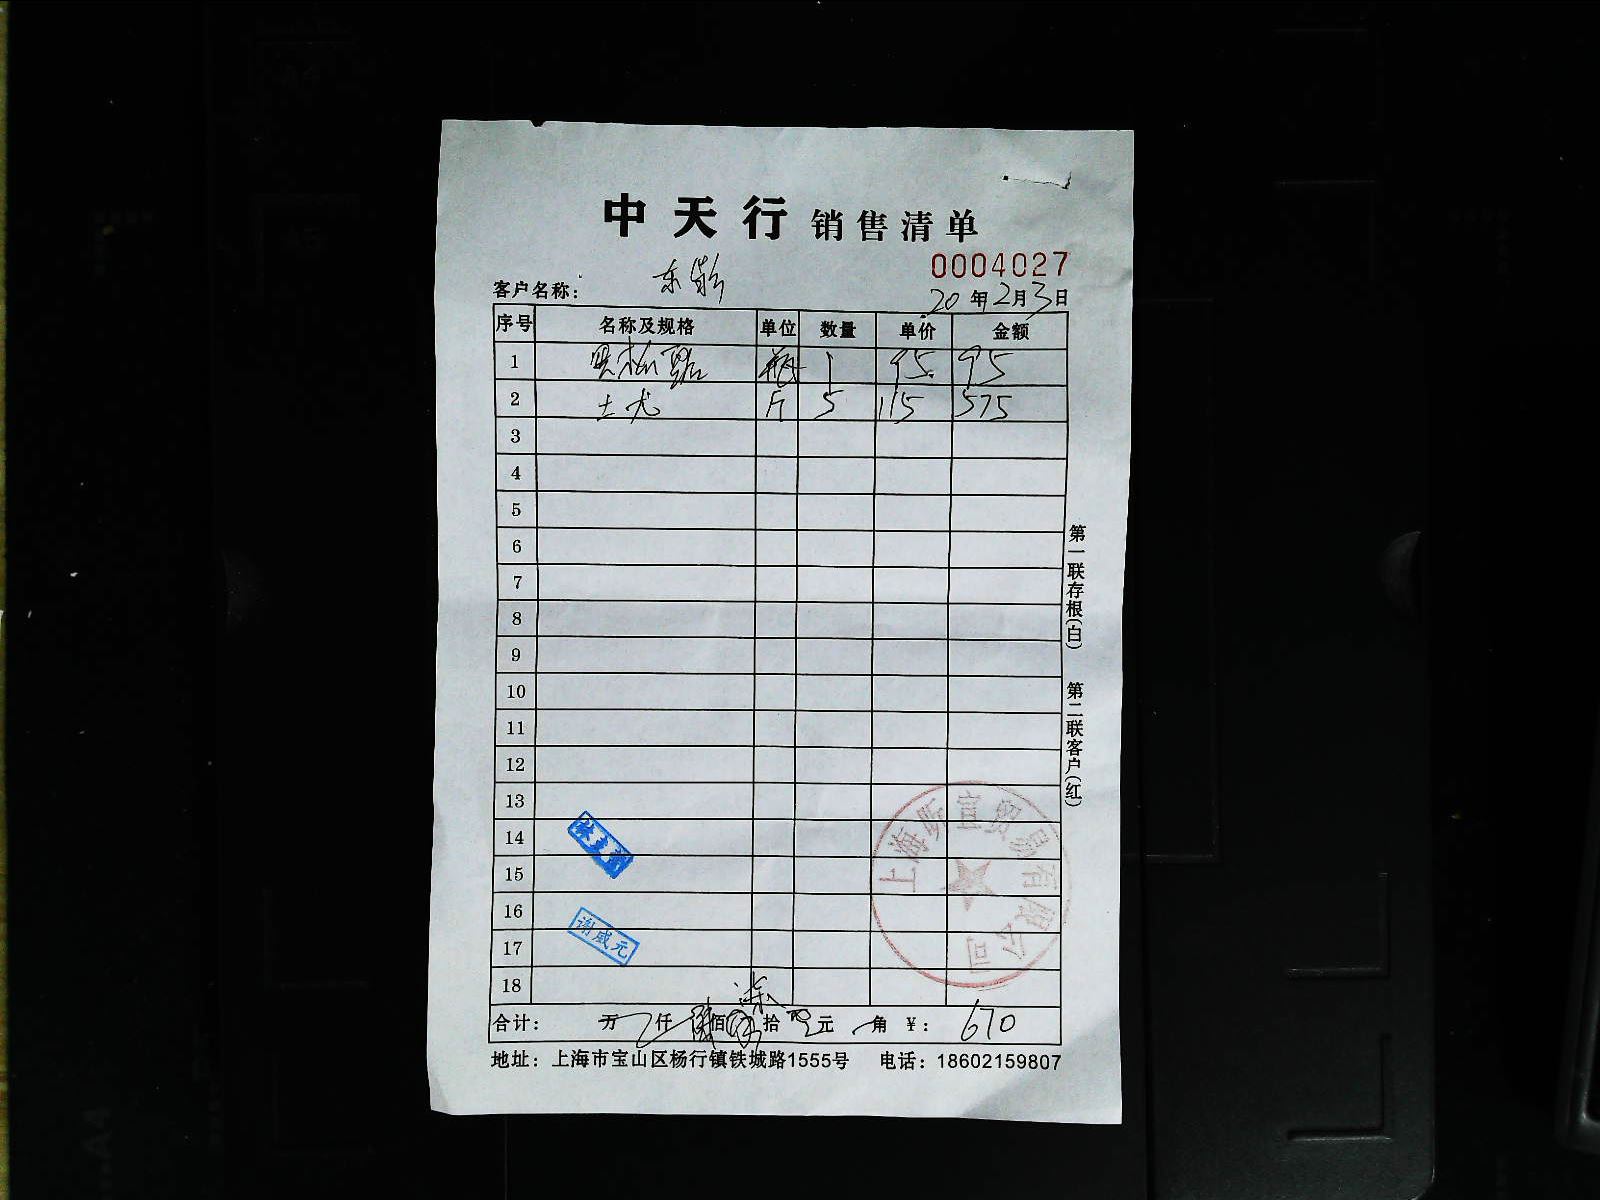 中天行 销售清单
0004027
客户名称：东
20年2月3日
序号 名称及规格 单位 数量 单价 金额
1 瓶 1 95. 95
2 土尤 斤 5 115 575
3
4
5
6
7
8
9
10
11
12
13
14
15
16
17
18
第一联存根(白) 第二联客户(红)
谢威元
上海昕宜贸易有限公司
合计： 万 仟 佰 拾 元 角 ￥：670
地址：上海市宝山区杨行镇铁城路1555号 电话：18602159807